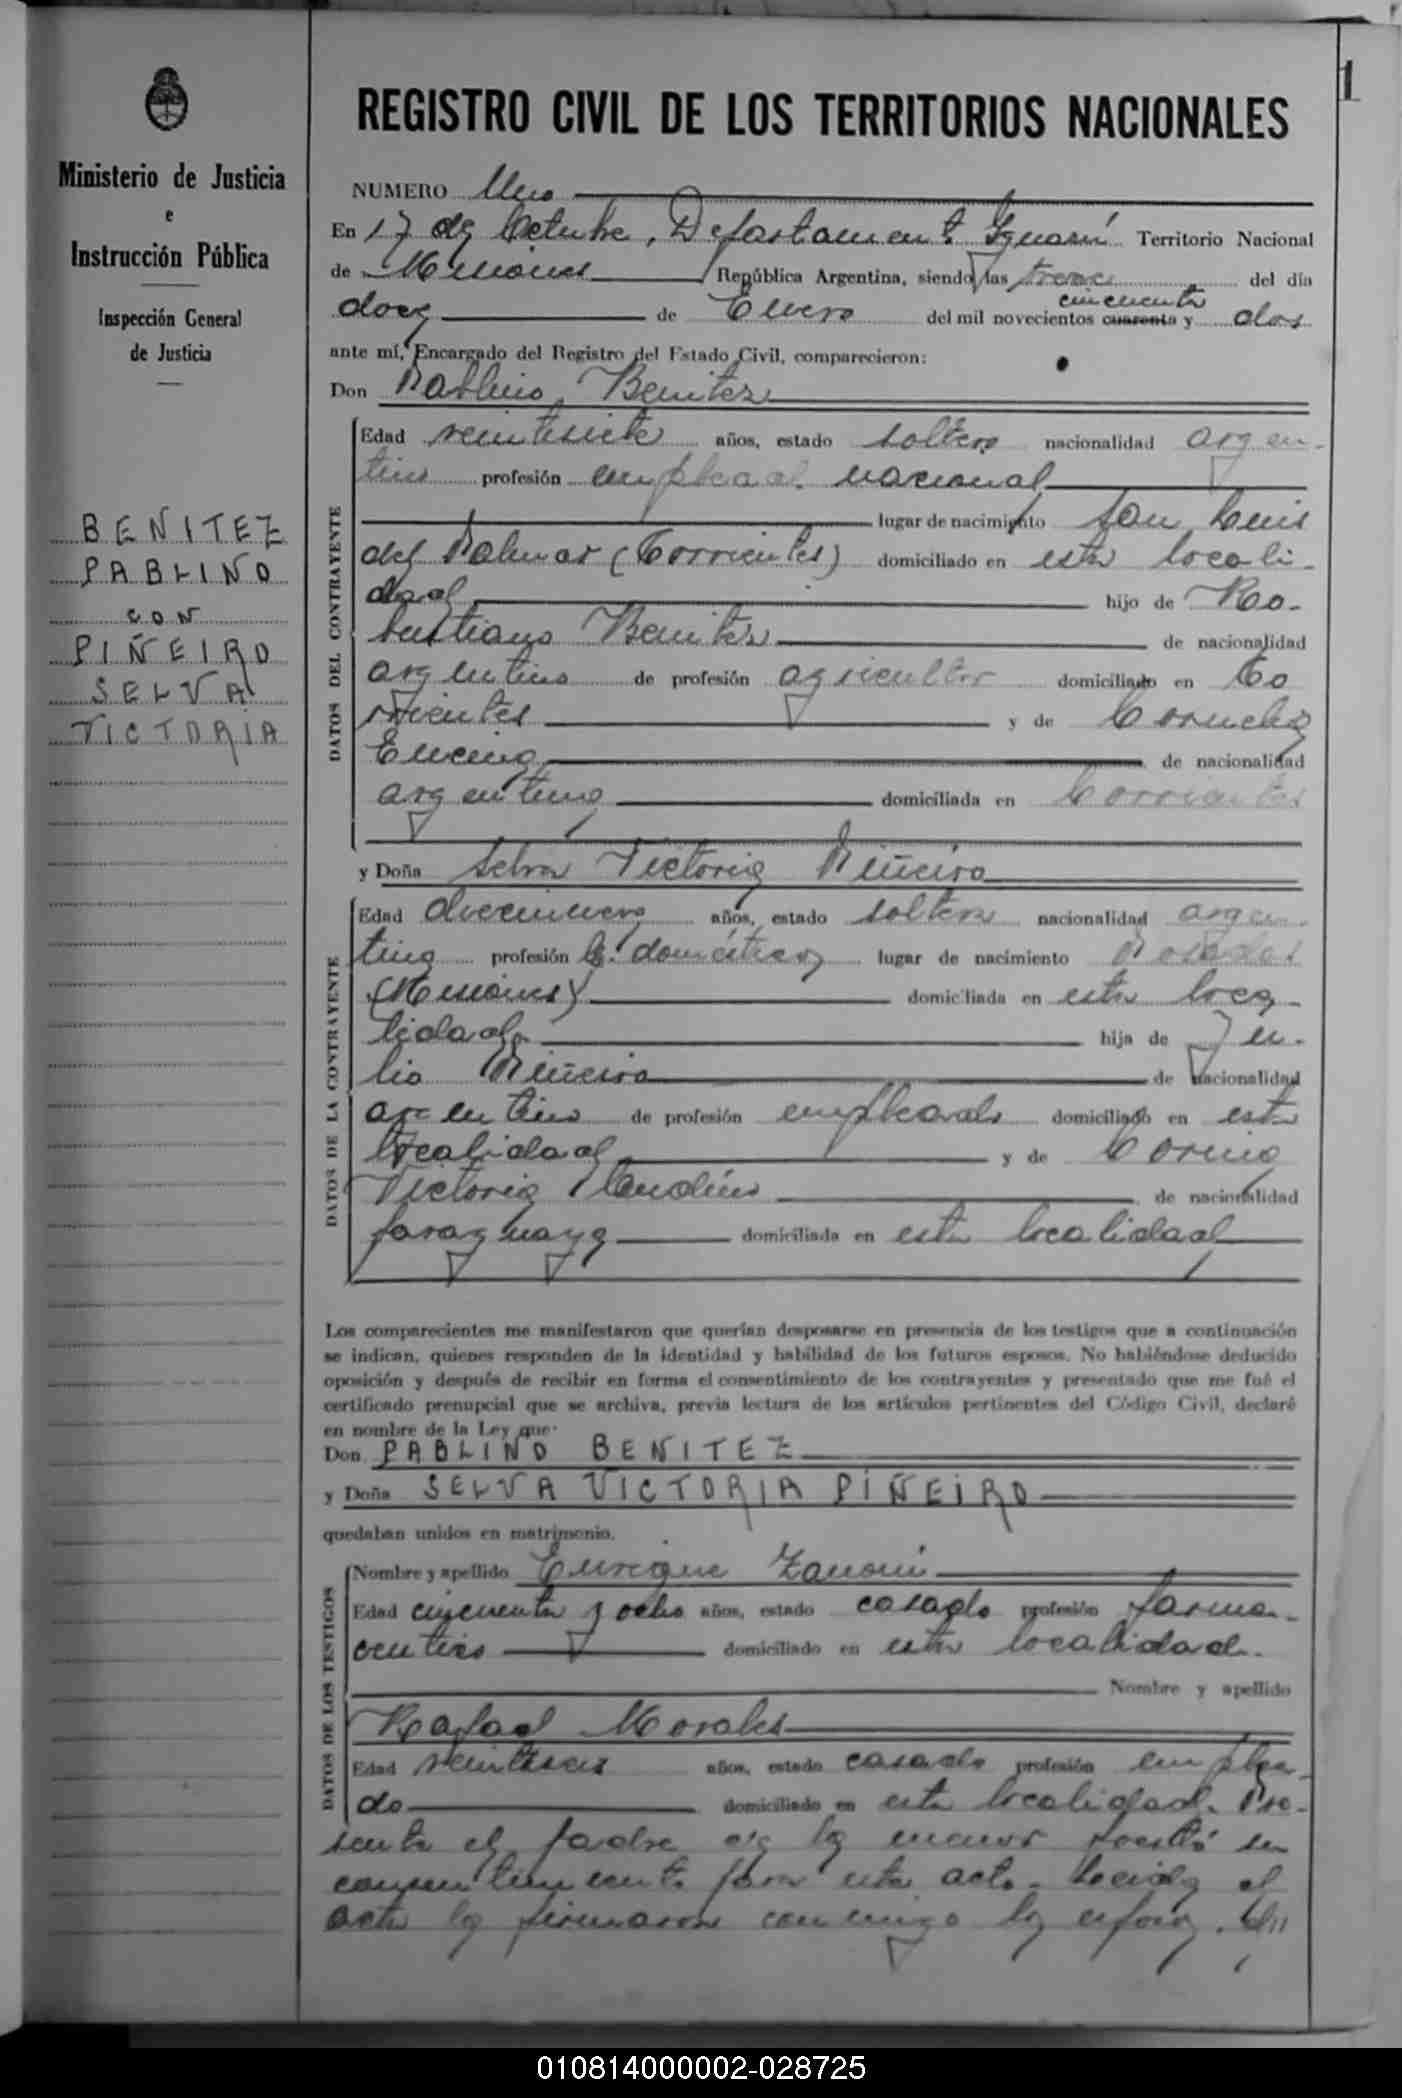 1
REGISTRO CIVIL DE LOS TERRITORIOS NACIONALES
Ministerio de Justicia
e
Instrucción Pública
Inspección General
de Justicia
BENITEZ
PABLINO
CON
PIÑEIRO
SELVA
VICTORIA
NUMERO Uno
En 17 de Octubre, Departamento Iguazú Territorio Nacional
de Misiones República Argentina, siendo las trece del día
doce de Enero del mil novecientos cuarenta cincuenta y dos
ante mí, Encargado del Registro del Estado Civil, comparecieron:
Don Pablino Benitez
DATOS DEL CONTRAYENTE
Edad veintisiete años, estado soltero nacionalidad argen-
tino profesión empleado nacional
lugar de nacimiento San Luis
del Palmar (Corrientes) domiciliado en esta locali-
dad hijo de Ro-
bustiano Benitez de nacionalidad
argentino de profesión agricultor domiciliado en Co
rrientes y de
Encina de nacionalidad
argentina domiciliada en Corrientes
y Doña Selva Victoria Piñeiro
DATOS DE LA CONTRAYENTE
Edad diecinueve años, estado soltera nacionalidad argen-
tina profesión q. domésticos lugar de nacimiento Posadas
(Misiones) domiciliada en esta loca-
lidad hija de Ju-
lio Piñeiro de nacionalidad
argentino de profesión empleado domiciliado en esta
localidad y de Corina
Victoria de nacionalidad
paraguaya domiciliada en esta localidad
Los comparecientes me manifestaron que querían desposarse en presencia de los testigos que a continuación
se indican, quienes responden de la identidad y habilidad de los futuros esposos. No habiéndose deducido
oposición y después de recibir en forma el consentimiento de los contrayentes y presentado que me fué el
certificado prenupcial que se archiva, previa lectura de los artículos pertinentes del Código Civil, declaré
en nombre de la Ley que:
Don PABLINO BENITEZ
y Doña SELVA VICTORIA PIÑEIRO
quedaban unidos en matrimonio.
DATOS DE LOS TESTIGOS
Nombre y apellido Enrique Zanoni
Edad cincuenta y ocho años, estado casado profesión farma-
ceutico domiciliado en esta localidad.
Nombre y apellido
Rafael Morales
Edad veintiseis años, estado casado profesión emplea-
do domiciliado en esta localidad. Pre-
sente el padre de la menor prestó su
consentimiento para este acto. Leida el
acta la firmaron conmigo los esposos,
010814000002-028725